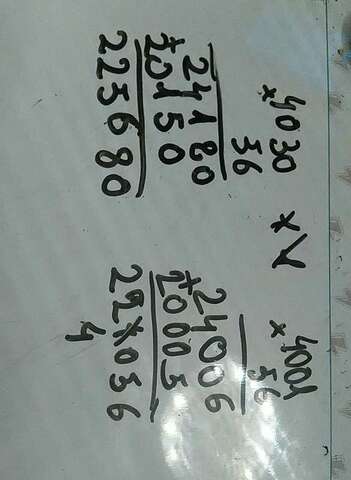 4030
× 56
24180
+ 20150
225680
4001
× 56
24006
+ 20005
22x056
4